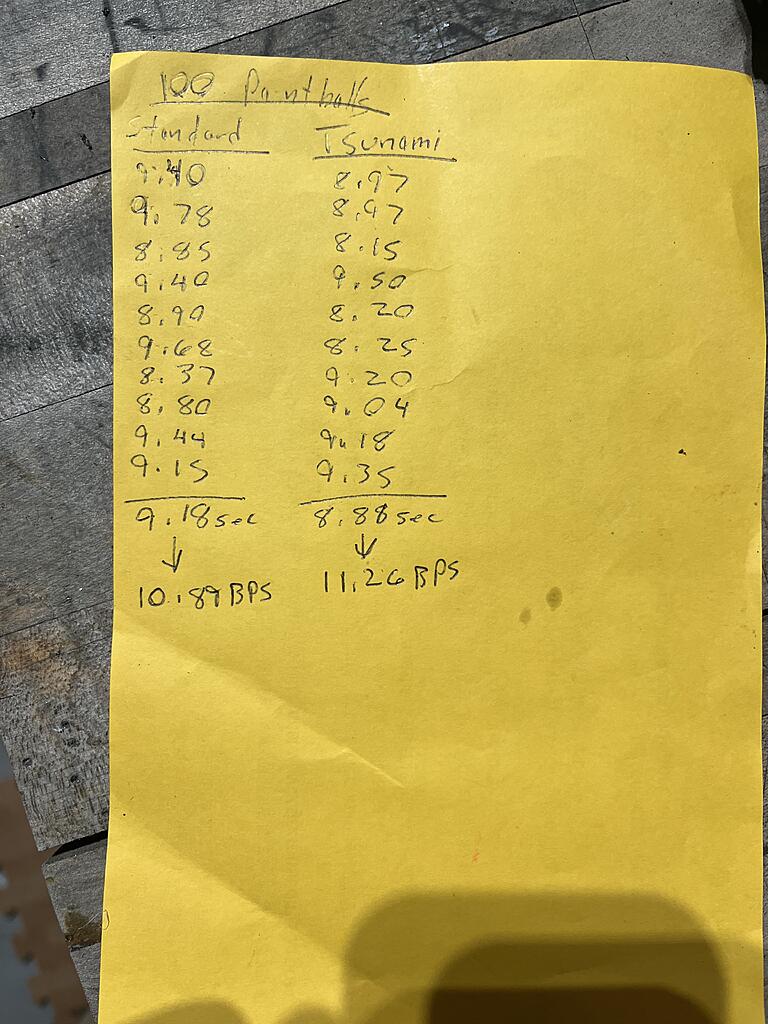 100 Paintballs
Standard Tsunami
9.40 8.97
9.78 8.97
8.85 8.15
9.40 9.50
8.90 8.20
9.68 8.25
8.37 9.20
8.80 9.04
9.44 9.18
9.15 9.35
9.18 sec 8.88 sec
10.89 BPS 11.26 BPS